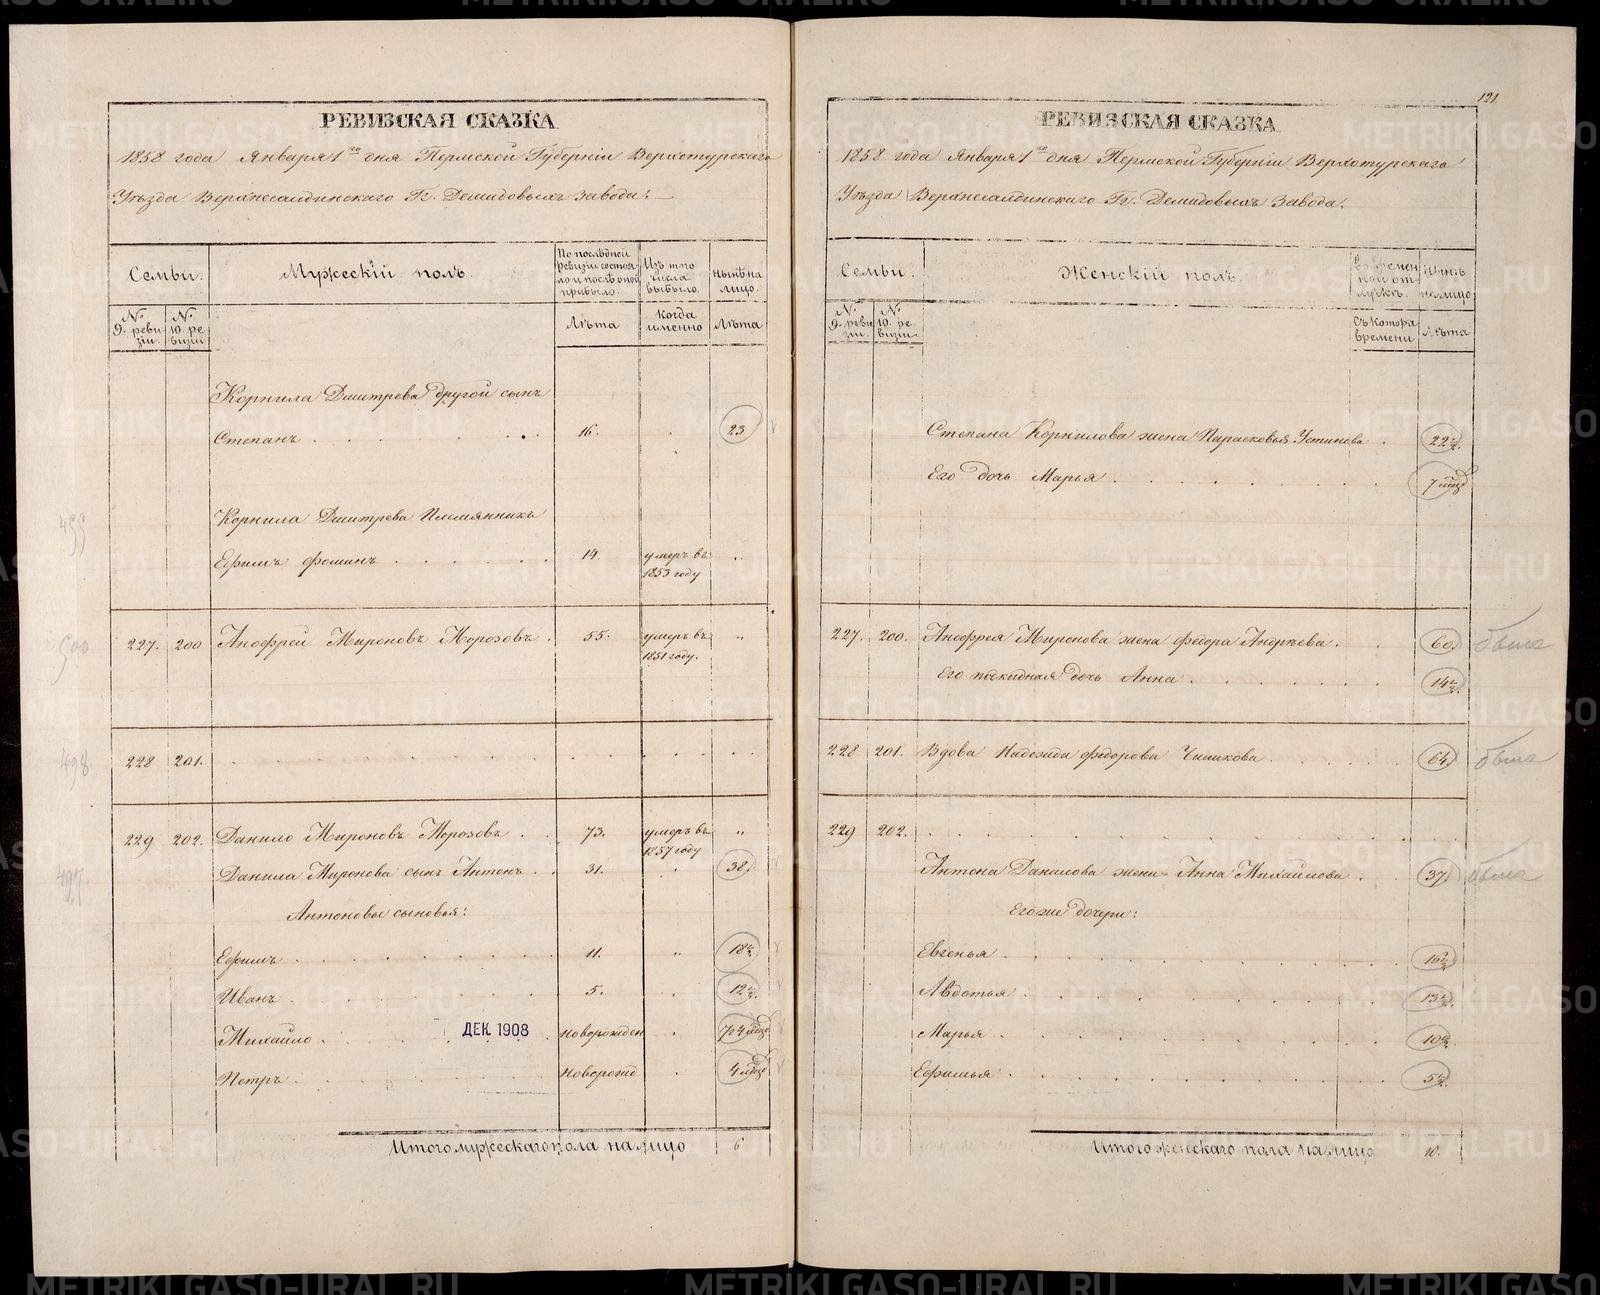 РЕВИЗСКАЯ СКАЗКА
1858 года Января 1го дня Пермской Губерніи Верхотурскаго
Уѣзда Верхнесалдинскаго Гг. Демидовыхъ завода.
Семьи.
Мужескій полъ.
По послѣдней ревизіи состояло и послѣ оной прибыло.
Изъ того числа выбыло.
Нынѣ на лицо.
№ 9. ревизіи.
№ 10. ревизіи
Лѣта
Когда именно
Лѣта
Корнила Дмитрева другой сынъ
Степанъ 16. 23
Корнила Дмитрева Племянникъ
499
Ефимъ Фоминъ 14. умеръ въ 1853 году "
500
227. 200 Анофрей Мироновъ Морозовъ. 55. умеръ въ 1851 году. "
498
228 201.
229 202. Данило Мироновъ Морозовъ. 73. умеръ въ 1857 году "
497
Данила Миронова сынъ Антонъ. 31. 38.
Антоновы сыновья:
Ефимъ 11. " 18½
Иванъ 5. 12½.
Михайло. новорожден
ДЕК. 1908
Петръ новорожд 4 мѣц
Итого мужескаго пола на лицо 6
121.
РЕВИЗСКАЯ СКАЗКА
1858 года Января 1го дня Пермской Губерніи Верхотурскаго
Уѣзда Верхнесалдинскаго Гг. Демидовыхъ завода.
Семьи.
Женскій полъ.
Во временной отлучкѣ.
Нынѣ на лицо
№ 9. ревизіи
№ 10. ревизіи.
Съ котора времени
Лѣта
Степана Корнилова жена Парасковья Устинова. 22½.
Его дочь Марья. 7 мѣц
227. 200. Анофрея Миронова жена Федора Андреева. 60. была
Его дочь Анна. 14½.
228 201. Вдова Надежда Федорова 64. была
229 202.
Антона Данилова жена Анна Михайлова. 37 была
Его же дочери:
Евгенья 16½
Авдотья 13½.
Марья 10½.
Ефимья 5½.
Итого женскаго пола на лицо 10.
METRIKI.GASO-URAL.RU